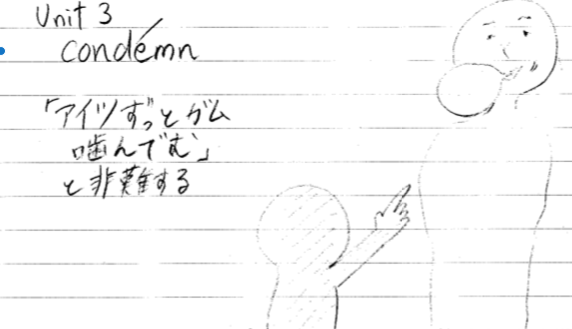 Unit 3
condémn
「アイツずっとガム
噛んでむ」
と非難する